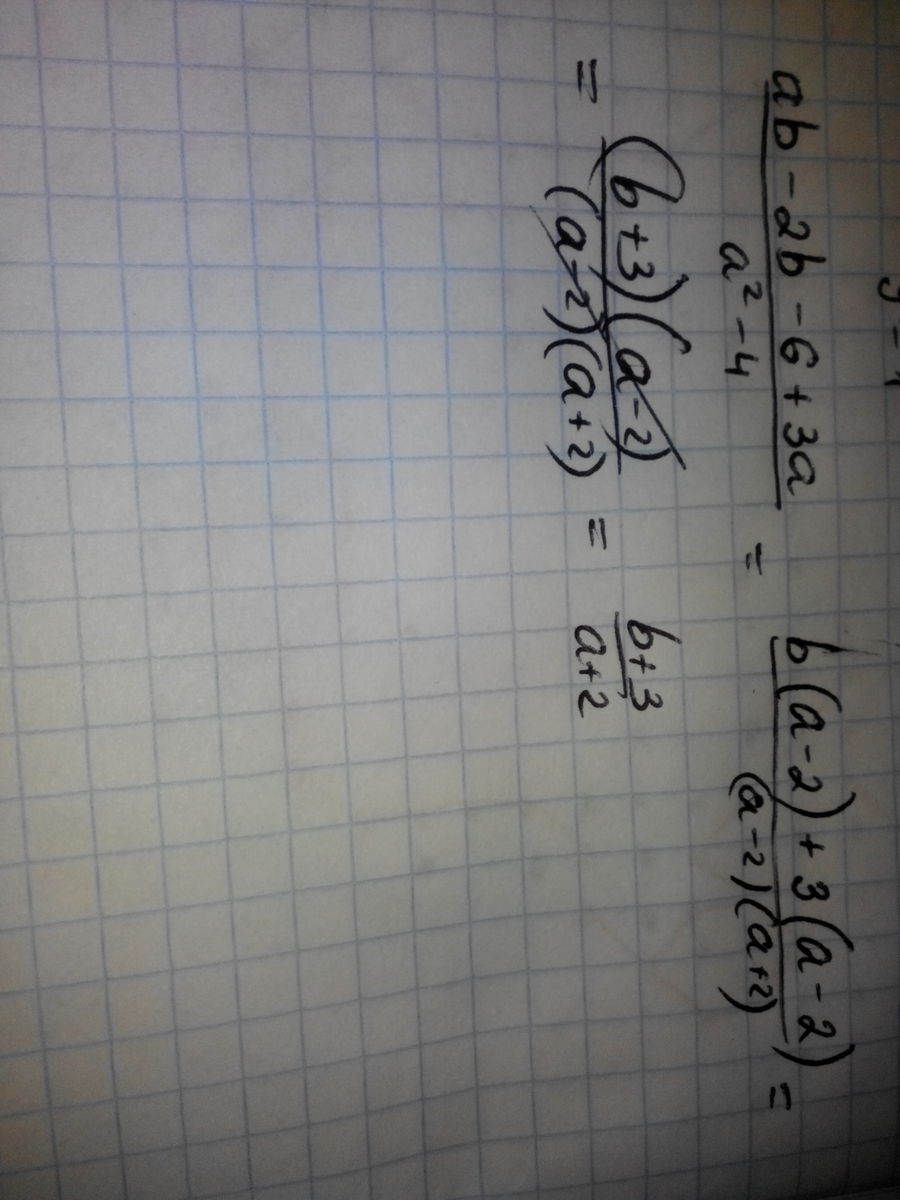 ab - 2b - 6 + 3a / a² - 4 = b(a - 2) + 3(a - 2) / (a - 2)(a + 2) =
= (b + 3)(a - 2) / (a - 2)(a + 2) = b + 3 / a + 2